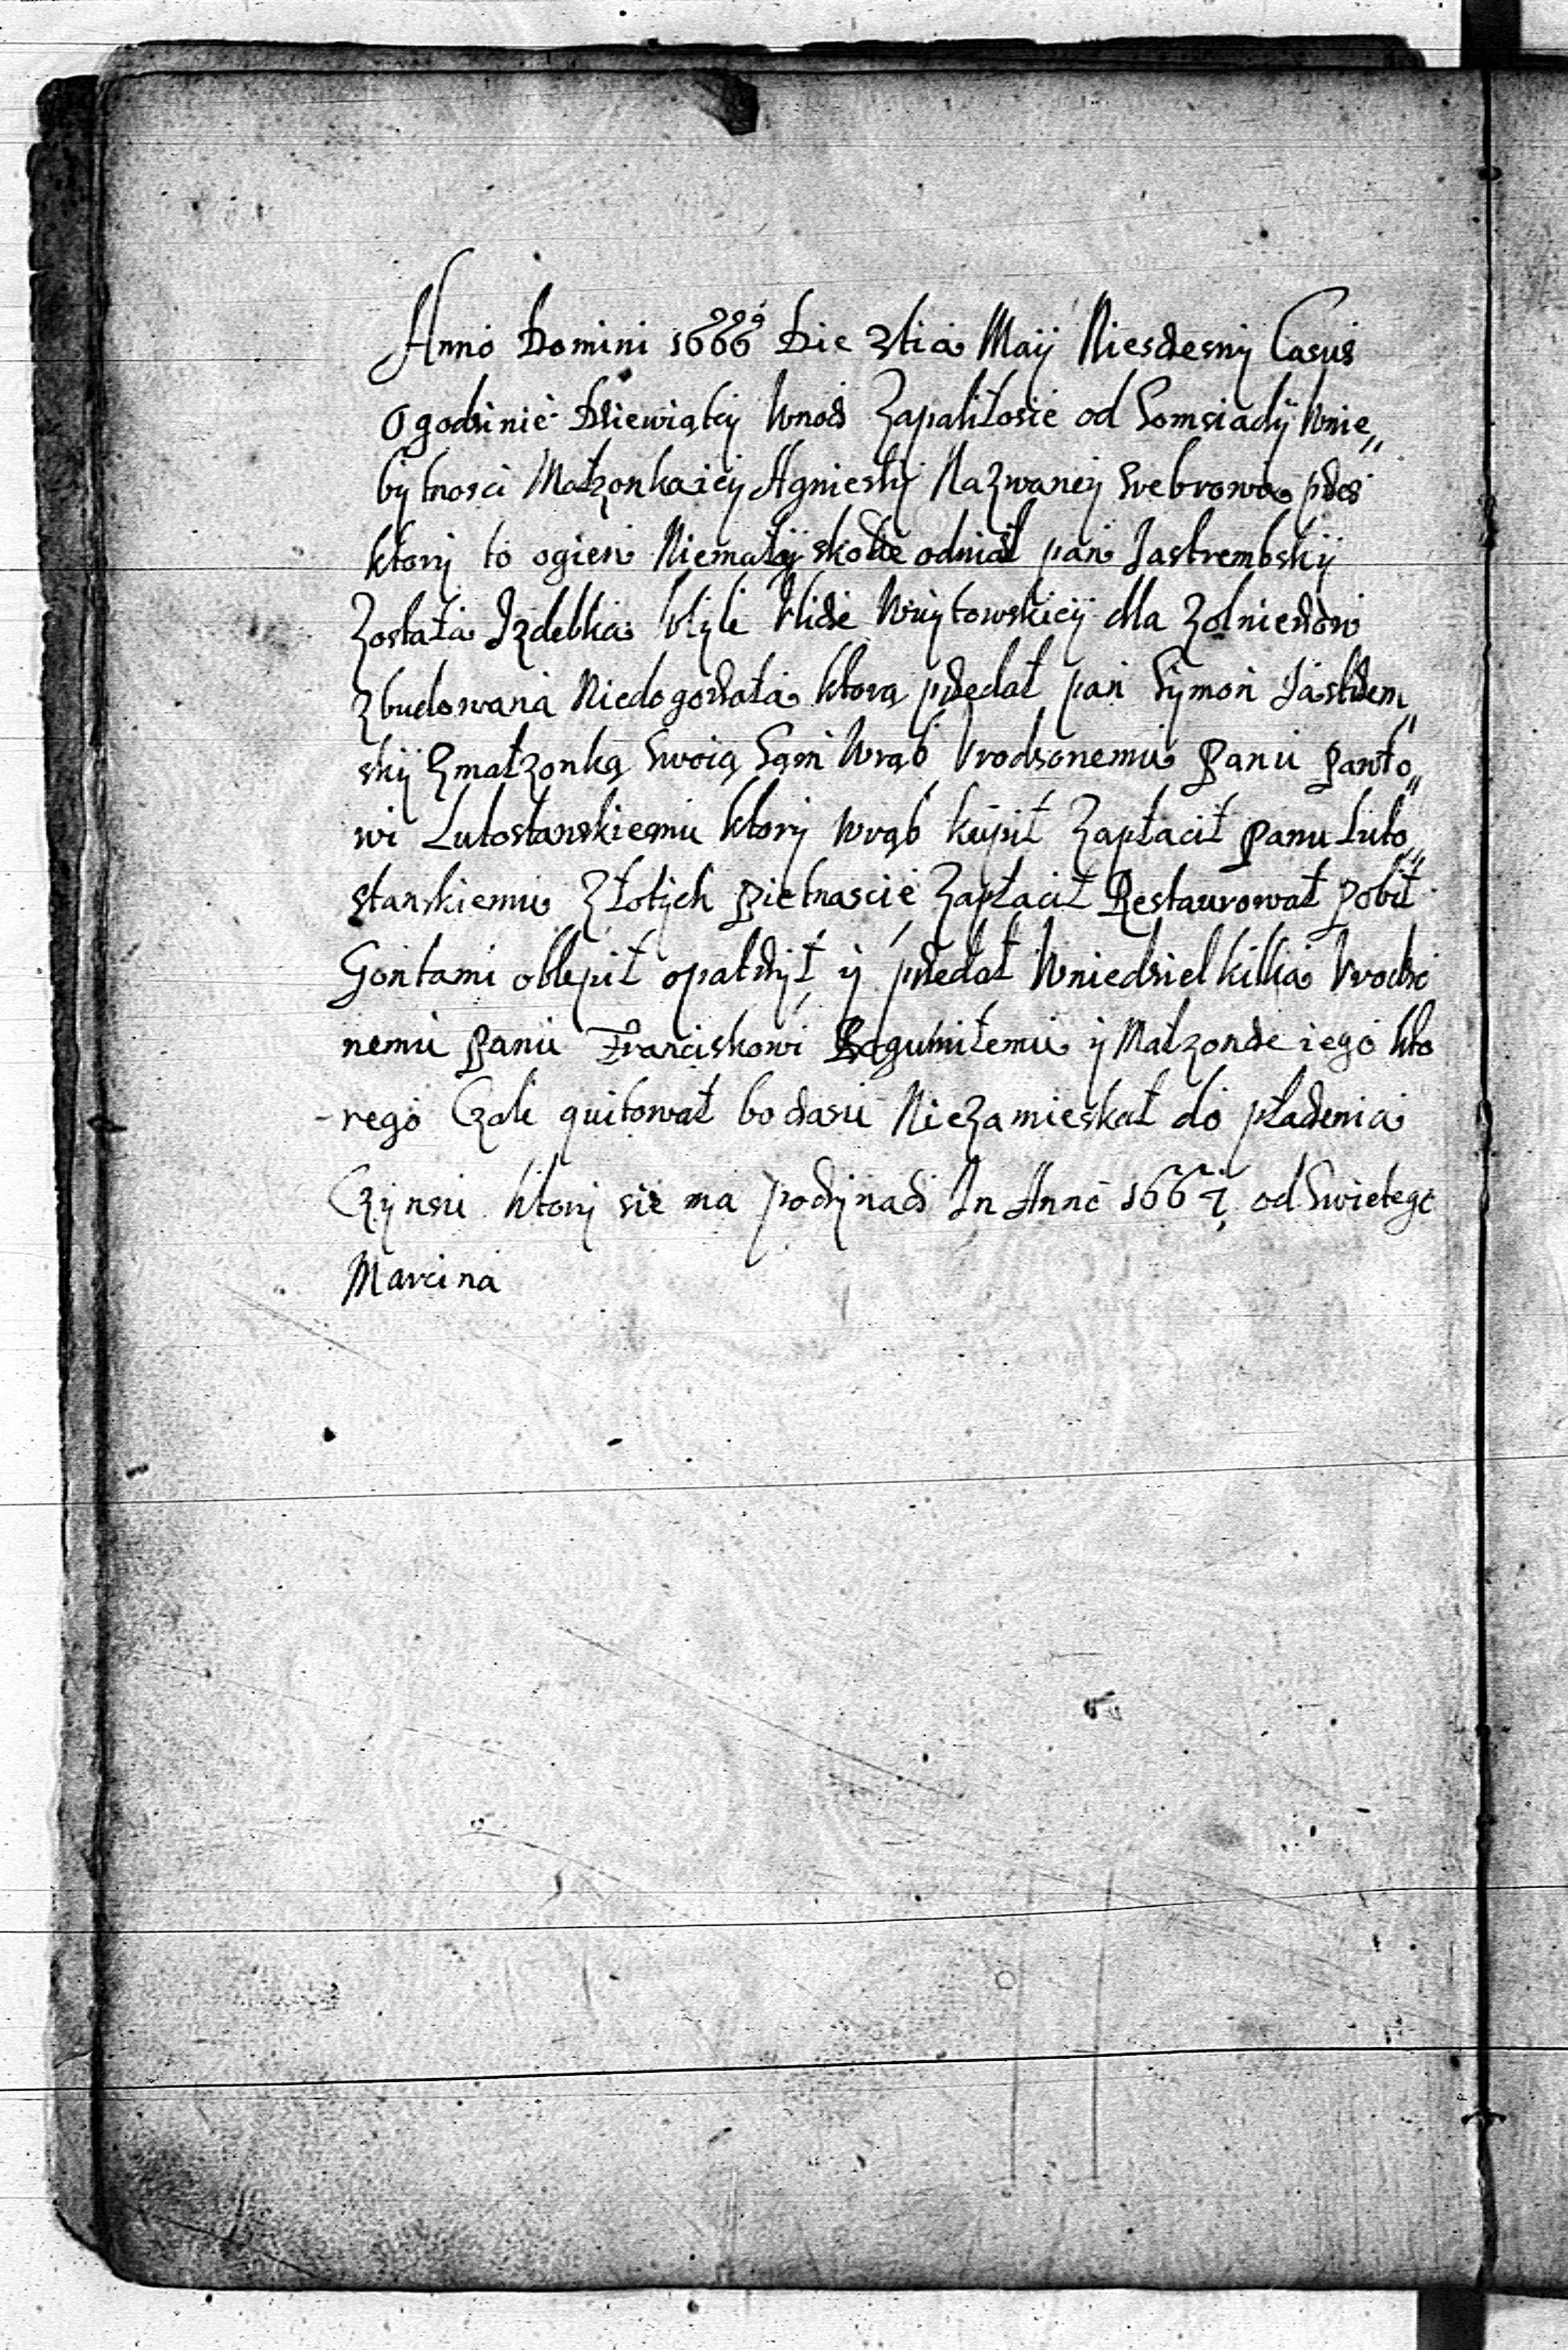 Anno Domini 1666 Die 3tia Maij Niesczesny Casus
O godzinie Dziewiątej Wnocz Zapaliłosie od Somsiady Wnie„
bytnosci Małzonka iey Agnieski Nazwaney Srebrowa przes
ktory to ogien Niemały skode odniosł pan Jastrembskij
Zostala Izdebka Wtyle Uliczi Woytowskieij dla Zolnierzow
Zbudowana Niedogorzała ktorą przedał pan Symon Jastrzem„
skij Zmałzonką Swoią Sam Wrąb Urodzonemu Panu Pawło„
wi Lutostanskiemu ktory Wrąb kupił Zapłacił Panu Luto„
stanskiemu Złotych Pietnascie Zapłacił Restaurował Pobił
Gontami oblepił opatrzył y przedał Wniedziel kilka Urodzo
nemu Panu Franciskowi Bogumiłemu y Małzonce iego kto
-rego Czole quitował bo czasu Niezamieskał do płacenia
Czynsu ktory sie ma poczynacz In Anno 1667 od Swietego
Marcina